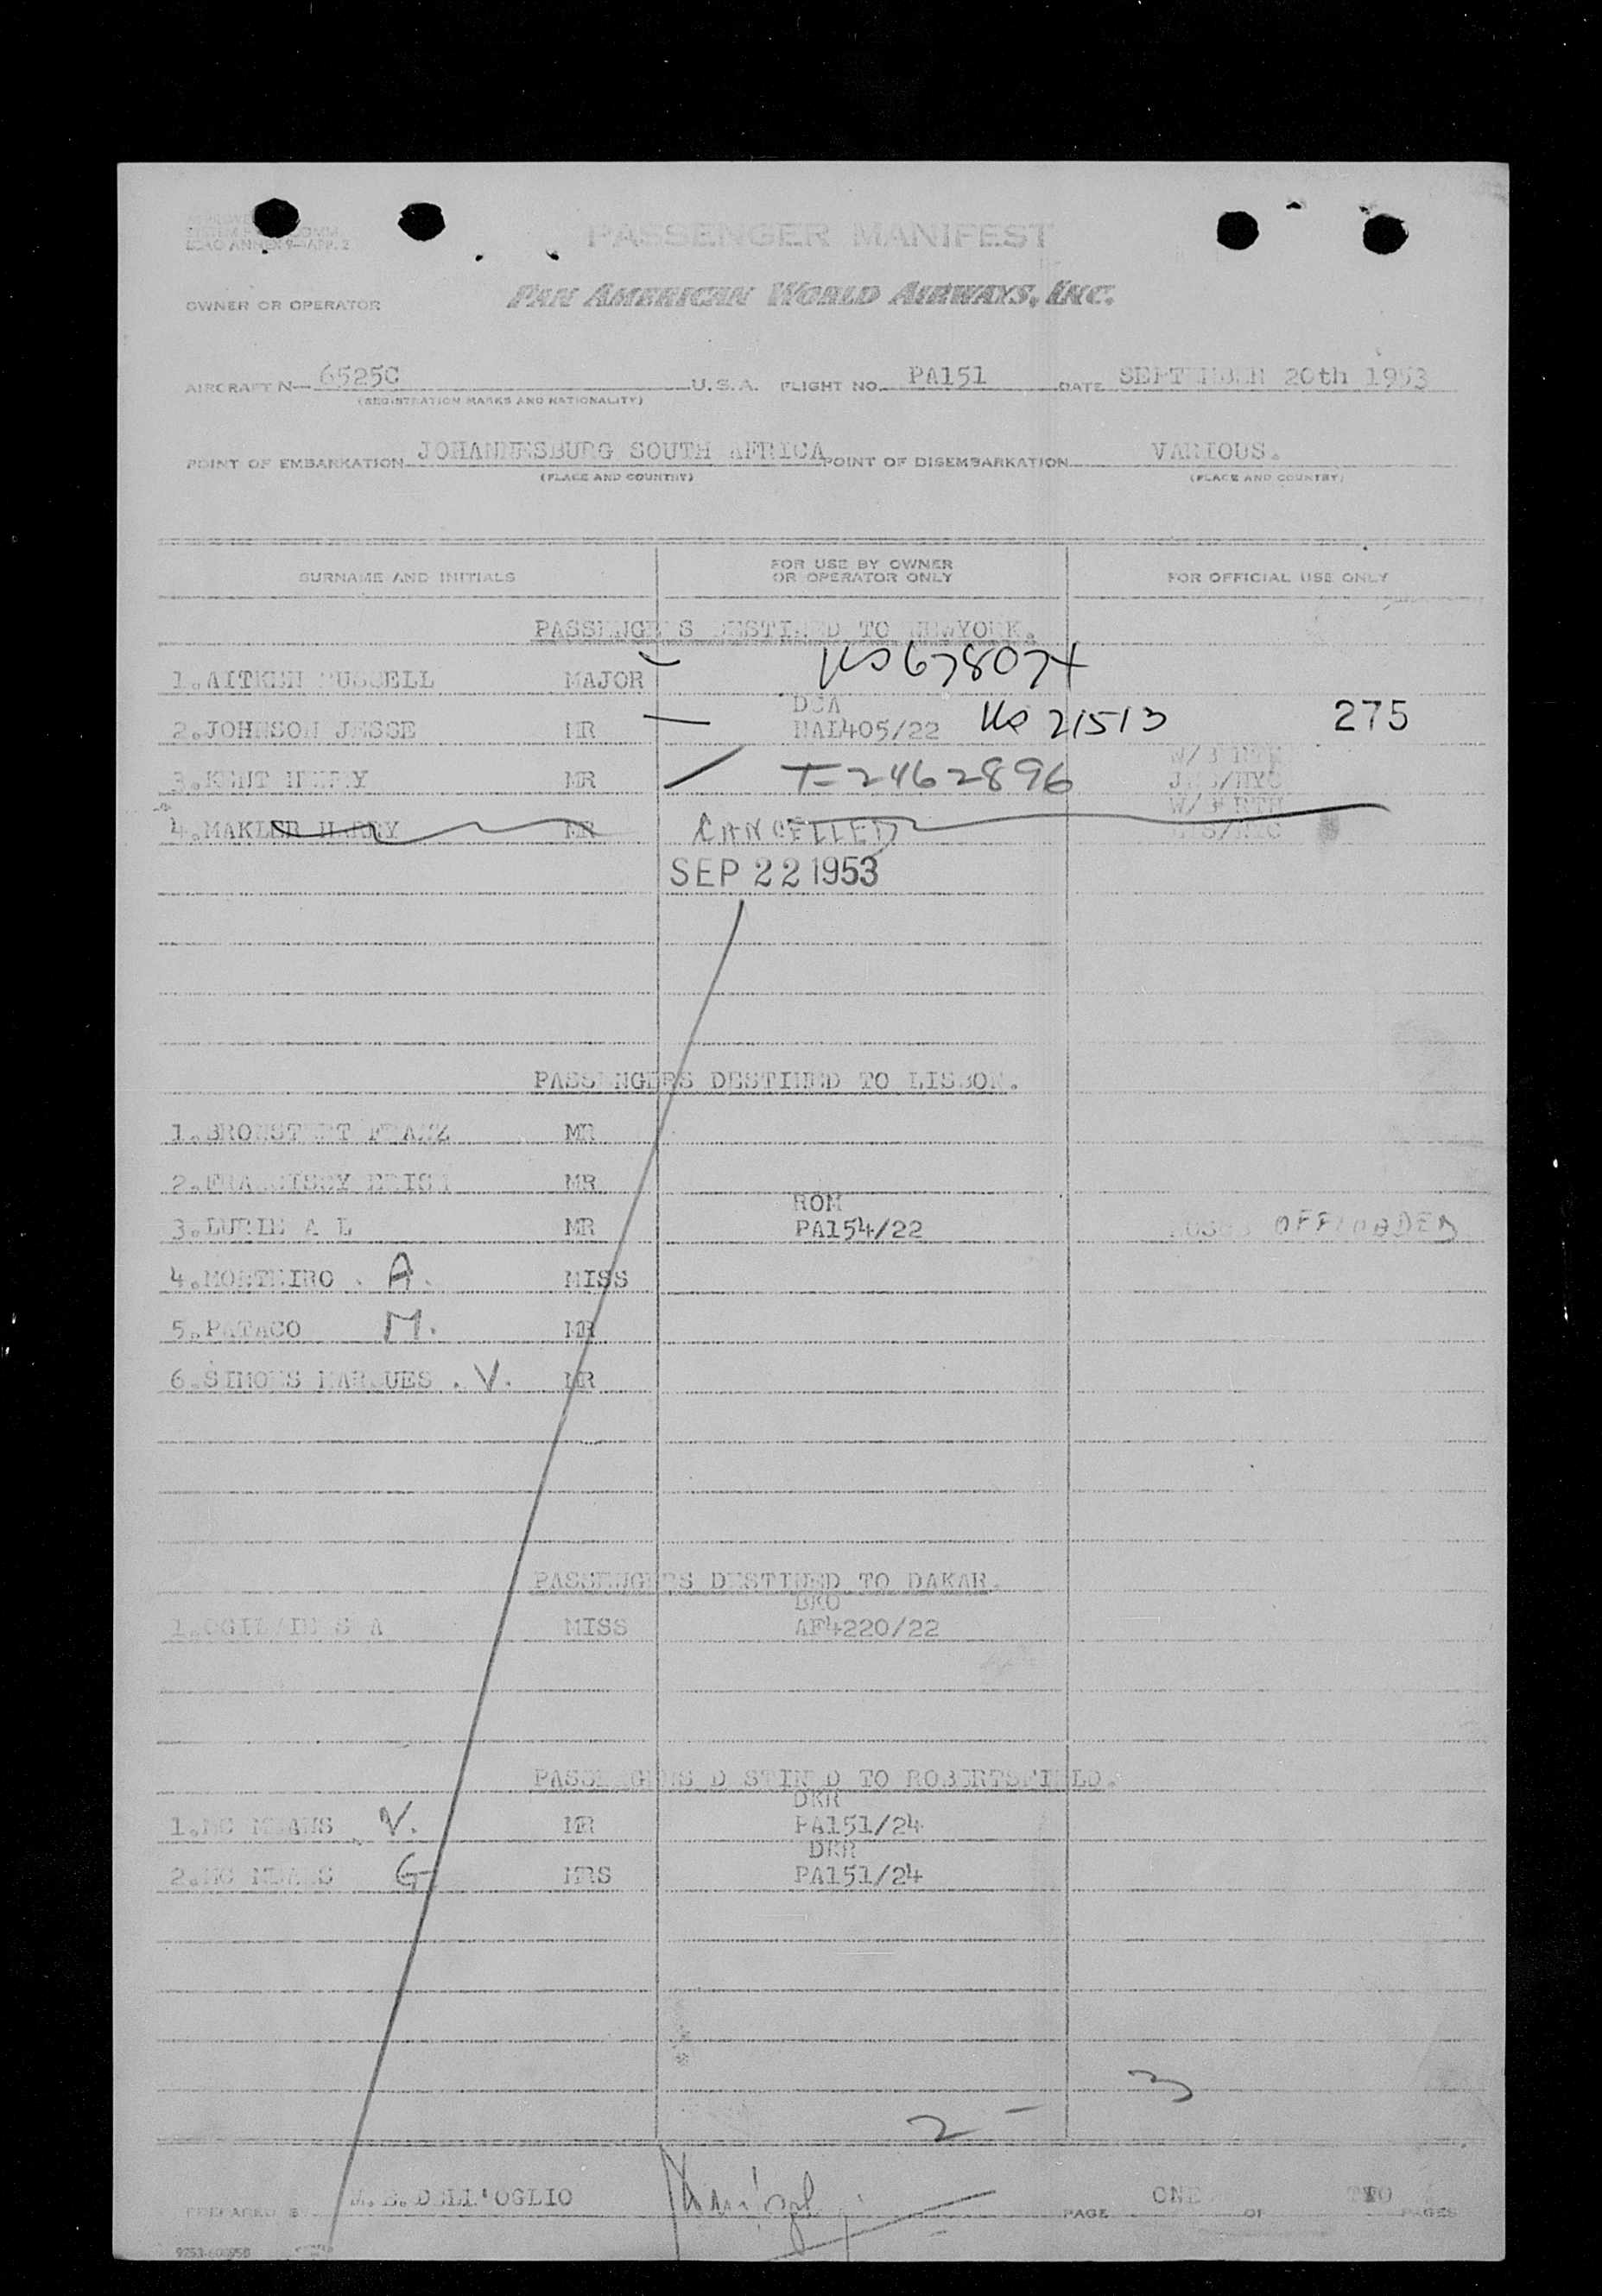 ICAO ANNEX 9—APP. 2
PASSENGER MANIFEST
OWNER OR OPERATOR PAN AMERICAN WORLD AIRWAYS, INC.
AIRCRAFT N— 6525C U.S.A. FLIGHT NO. PA151 DATE SEPTEMBER 20th 1953
(REGISTRATION MARKS AND NATIONALITY)
POINT OF EMBARKATION JOHANNESBURG SOUTH AFRICA POINT OF DISEMBARKATION VARIOUS.
(PLACE AND COUNTRY) (PLACE AND COUNTRY)
SURNAME AND INITIALS FOR USE BY OWNER OR OPERATOR ONLY FOR OFFICIAL USE ONLY
PASSENGERS DESTINED TO NEWYORK.
1.AITKEN RUSSELL MAJOR 678074
DCA
2.JOHNSON JESSE MR NAL405/22 21513 275
3.KENT HENRY MR T-2462896 JNB/NYC
4.MAKLER HARRY MR CANCELLED
SEP 22 1953
PASSENGERS DESTINED TO LISBON.
1. FRANZ MR
2. MR
ROM
3.LURIE A L MR PA154/22 OFFLOADED
4.MONTEIRO . A. MISS
5.PATACO M. MR
6.SIMOES MARQUES . V. MR
PASSENGERS DESTINED TO DAKAR.
BKO
1.OGILVIE S A MISS AF4220/22
PASSENGERS DESTINED TO ROBERTSFIELD.
DKR
1.MC MEANS V. MR PA151/24
DKR
2.MC MEANS G MRS PA151/24
3
2 –
PREPARED BY M.E.DELL'OGLIO PAGE ONE OF TWO PAGES